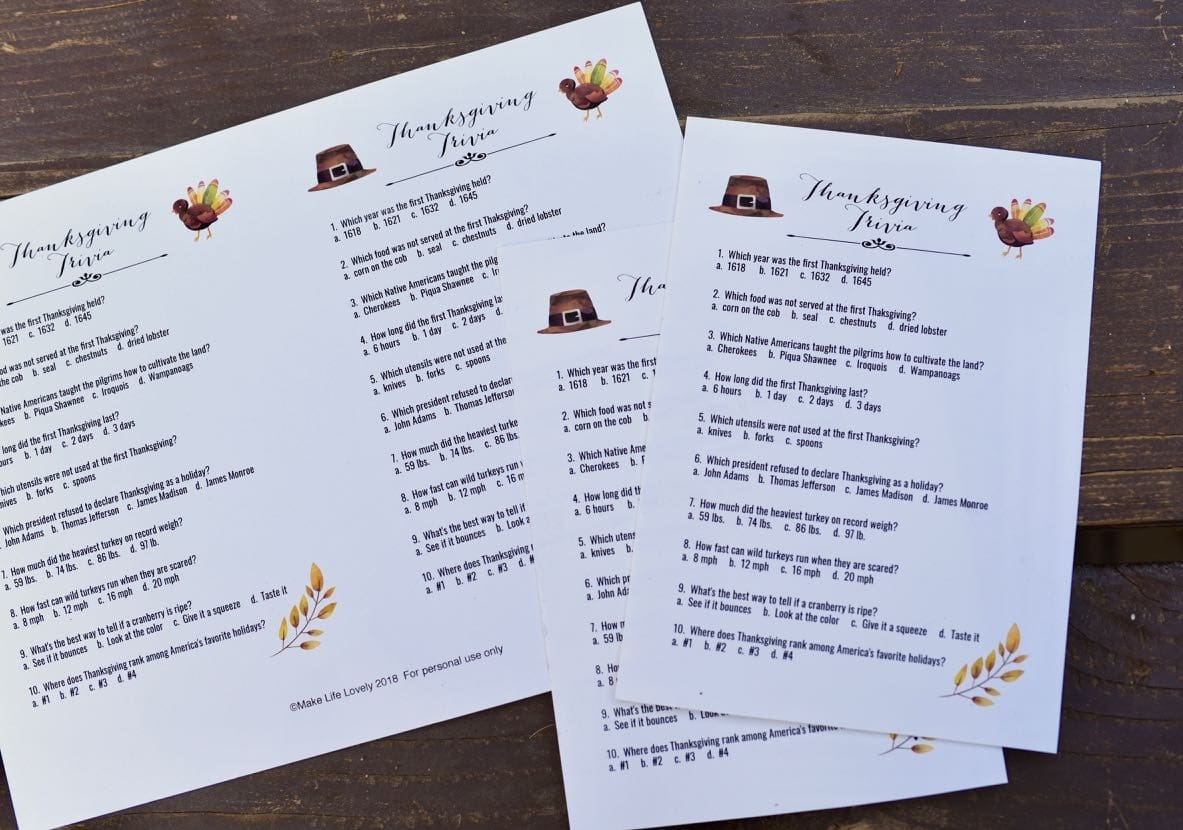 Thanksgiving
Trivia
was the first Thanksgiving held?
1621 c. 1632 d. 1645
was not served at the first Thaksgiving?
the cob b. seal c. chestnuts d. dried lobster
Native Americans taught the pilgrims how to cultivate the land?
b. Piqua Shawnee c. Iroquois d. Wampanoags
long did the first Thanksgiving last?
b. 1 day c. 2 days d. 3 days
utensils were not used at the first Thanksgiving?
b. forks c. spoons
Which president refused to declare Thanksgiving as a holiday?
John Adams b. Thomas Jefferson c. James Madison d. James Monroe
7. How much did the heaviest turkey on record weigh?
a. 59 lbs. b. 74 lbs. c. 86 lbs. d. 97 lb.
8. How fast can wild turkeys run when they are scared?
a. 8 mph b. 12 mph c. 16 mph d. 20 mph
9. What's the best way to tell if a cranberry is ripe?
a. See if it bounces b. Look at the color c. Give it a squeeze d. Taste it
10. Where does Thanksgiving rank among America's favorite holidays?
a. #1 b. #2 c. #3 d. #4
Thanksgiving
Trivia
1. Which year was the first Thanksgiving held?
a. 1618 b. 1621 c. 1632 d. 1645
2. Which food was not served at the first Thaksgiving?
a. corn on the cob b. seal c. chestnuts d. dried lobster
3. Which Native Americans taught the pilg the land?
a. Cherokees b. Piqua Shawnee c. Ir
4. How long did the first Thanksgiving la
a. 6 hours b. 1 day c. 2 days d.
5. Which utensils were not used at the
a. knives b. forks c. spoons
6. Which president refused to declar
a. John Adams b. Thomas Jefferso
7. How much did the heaviest turke
a. 59 lbs. b. 74 lbs. c. 86 lbs.
8. How fast can wild turkeys run
a. 8 mph b. 12 mph c. 16 m
9. What's the best way to tell if
a. See if it bounces b. Look a
10. Where does Thanksgiving
a. #1 b. #2 c. #3 d. #
©Make Life Lovely 2018 For personal use only
Tha
1. Which year was the first
a. 1618 b. 1621 c. 1
2. Which food was not s
a. corn on the cob b.
3. Which Native Ame
a. Cherokees b. P
4. How long did th
a. 6 hours b.
5. Which utens
a. knives b.
6. Which pr
a. John Ada
7. How m
a. 59 lb
8. How
a. 8
9. What's the best
a. See if it bounces b. Look
10. Where does Thanksgiving rank among America's favorite
a. #1 b. #2 c. #3 d. #4
Thanksgiving
Trivia
1. Which year was the first Thanksgiving held?
a. 1618 b. 1621 c. 1632 d. 1645
2. Which food was not served at the first Thaksgiving?
a. corn on the cob b. seal c. chestnuts d. dried lobster
3. Which Native Americans taught the pilgrims how to cultivate the land?
a. Cherokees b. Piqua Shawnee c. Iroquois d. Wampanoags
4. How long did the first Thanksgiving last?
a. 6 hours b. 1 day c. 2 days d. 3 days
5. Which utensils were not used at the first Thanksgiving?
a. knives b. forks c. spoons
6. Which president refused to declare Thanksgiving as a holiday?
a. John Adams b. Thomas Jefferson c. James Madison d. James Monroe
7. How much did the heaviest turkey on record weigh?
a. 59 lbs. b. 74 lbs. c. 86 lbs. d. 97 lb.
8. How fast can wild turkeys run when they are scared?
a. 8 mph b. 12 mph c. 16 mph d. 20 mph
9. What's the best way to tell if a cranberry is ripe?
a. See if it bounces b. Look at the color c. Give it a squeeze d. Taste it
10. Where does Thanksgiving rank among America's favorite holidays?
a. #1 b. #2 c. #3 d. #4